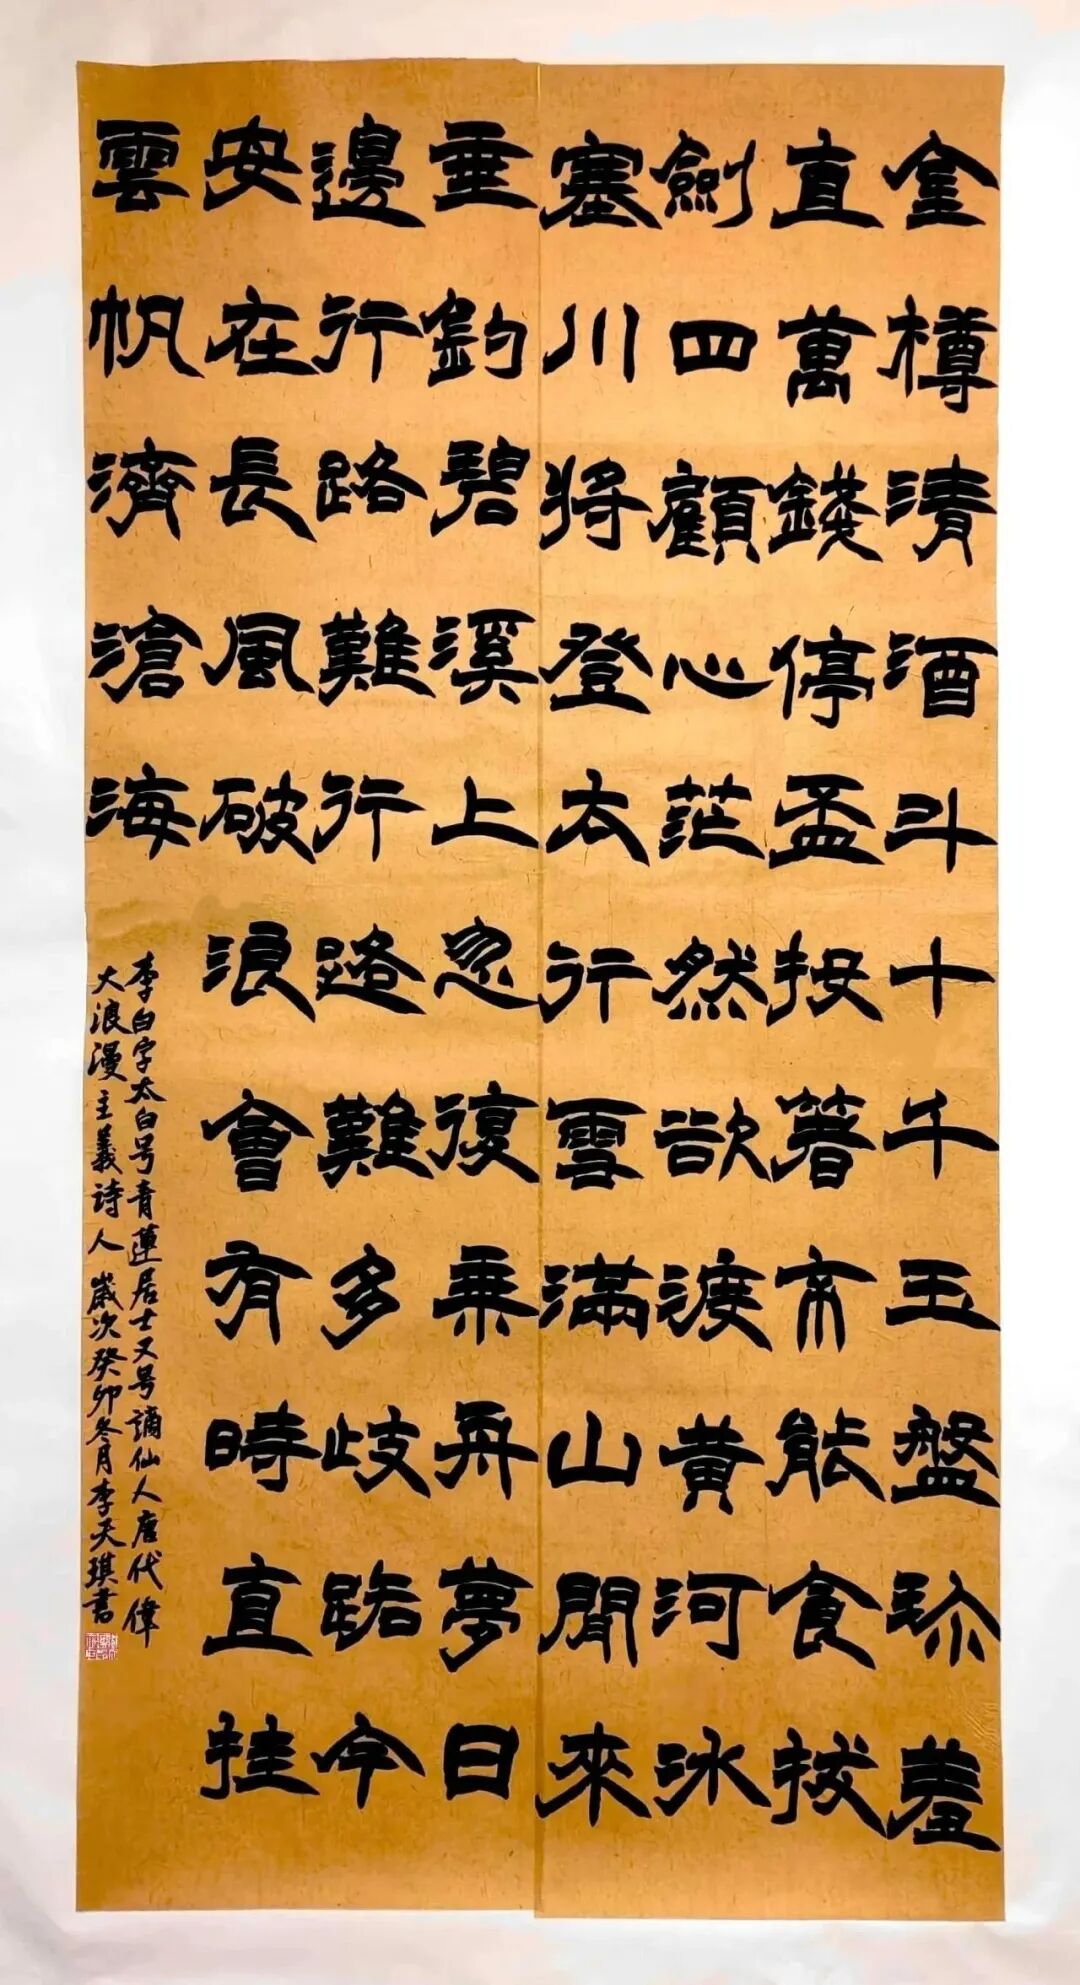 金樽清酒斗十千玉盤珎羞
直萬錢停盃投箸不能食拔
劍四顧心茫然欲渡黃河冰
塞川將登太行雪滿山閒來
垂釣碧溪上忽復乘舟夢日
邊行路難行路難多歧路今
安在長風破浪會有時直挂
雲帆濟滄海
李白字太白号青蓮居士又号謫仙人唐代偉
大浪漫主義詩人歲次癸卯冬月李天琪書